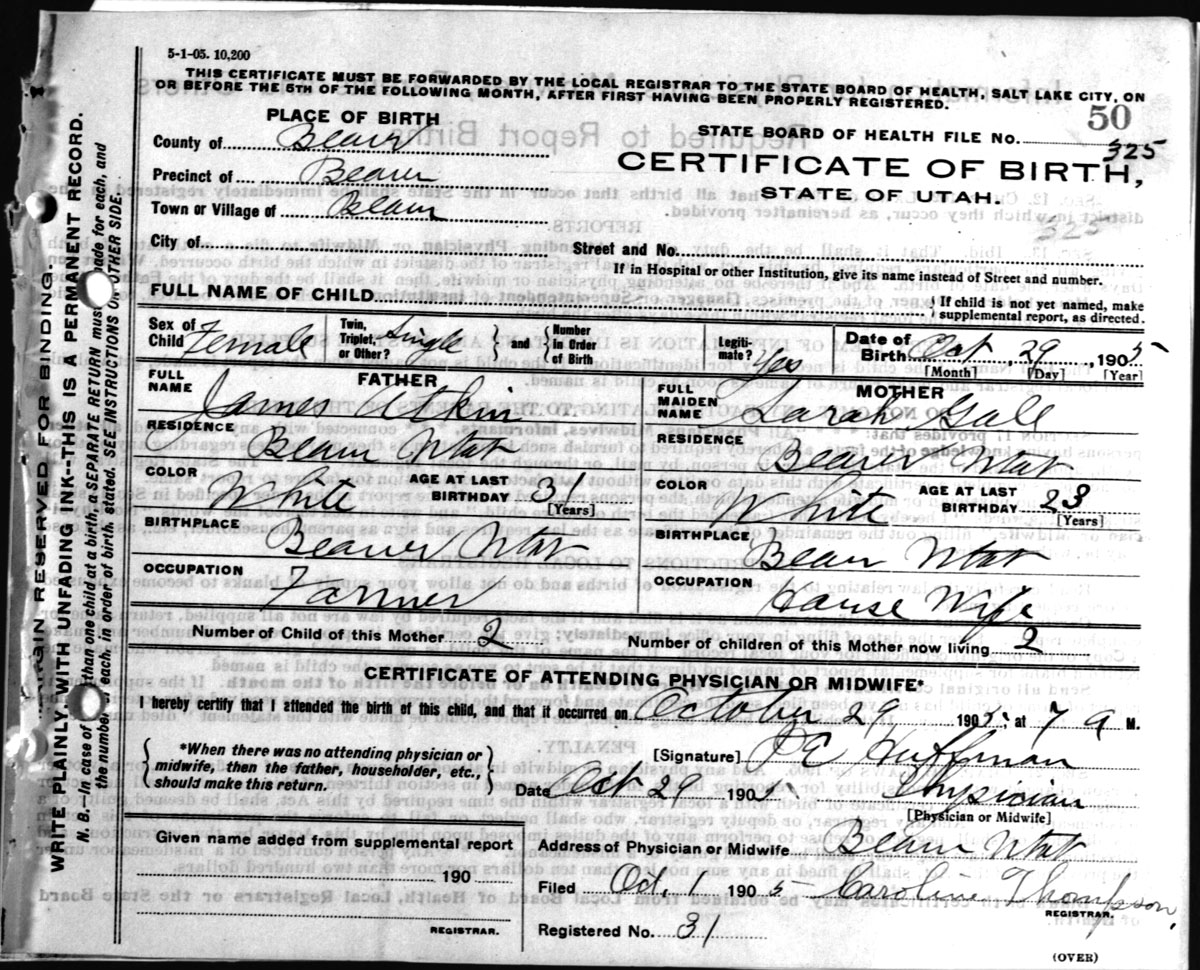 5-1-05. 10,200
THIS CERTIFICATE MUST BE FORWARDED BY THE LOCAL REGISTRAR TO THE STATE BOARD OF HEALTH, SALT LAKE CITY, ON
OR BEFORE THE 5TH OF THE FOLLOWING MONTH, AFTER FIRST HAVING BEEN PROPERLY REGISTERED.
50
PLACE OF BIRTH
STATE BOARD OF HEALTH FILE No. 325
County of Beaver
CERTIFICATE OF BIRTH,
Precinct of Beaver
STATE OF UTAH.
Town or Village of Beaver
325
City of
Street and No.
If in Hospital or other Institution, give its name instead of Street and number.
FULL NAME OF CHILD
If child is not yet named, make
supplemental report, as directed.
Sex of Child Female
Twin, Triplet, or Other? Single
and
Number in Order of Birth
Legiti-mate? Yes
Date of Birth Oct 29 1905
[Month] [Day] [Year]
FATHER
FULL NAME James Atkin
RESIDENCE Beaver Utah
COLOR White
AGE AT LAST BIRTHDAY 31
[Years]
BIRTHPLACE Beaver Utah
OCCUPATION Farmer
MOTHER
FULL MAIDEN NAME Sarah Gale
RESIDENCE Beaver Utah
COLOR White
AGE AT LAST BIRTHDAY 23
[Years]
BIRTHPLACE Beaver Utah
OCCUPATION House Wife
Number of Child of this Mother 2
Number of children of this Mother now living 2
CERTIFICATE OF ATTENDING PHYSICIAN OR MIDWIFE*
I hereby certify that I attended the birth of this child, and that it occurred on October 29 1905, at 7 a M.
*When there was no attending physician or
midwife, then the father, householder, etc.,
should make this return.
[Signature] Huffman
Date Oct 29 1905 Physician
[Physician or Midwife]
Given name added from supplemental report
190
REGISTRAR.
Address of Physician or Midwife Beaver Utah
Filed Oct. 1 1905 Caroline Thompson,
REGISTRAR.
Registered No. 31
(OVER)
MARGIN RESERVED FOR BINDING.
WRITE PLAINLY, WITH UNFADING INK--THIS IS A PERMANENT RECORD.
N. B.--In case of than one child at a birth, a SEPARATE RETURN must made for each, and
the number each, in order of birth, stated. SEE INSTRUCTIONS ON OTHER SIDE.